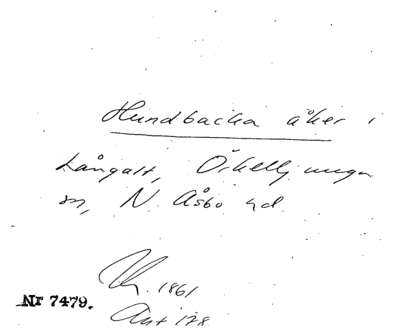 Hundbacka åker i
Långalt, Örkelljunga
sn, N. Åsbo hd.
1861
Nr 7479.
Ant 178